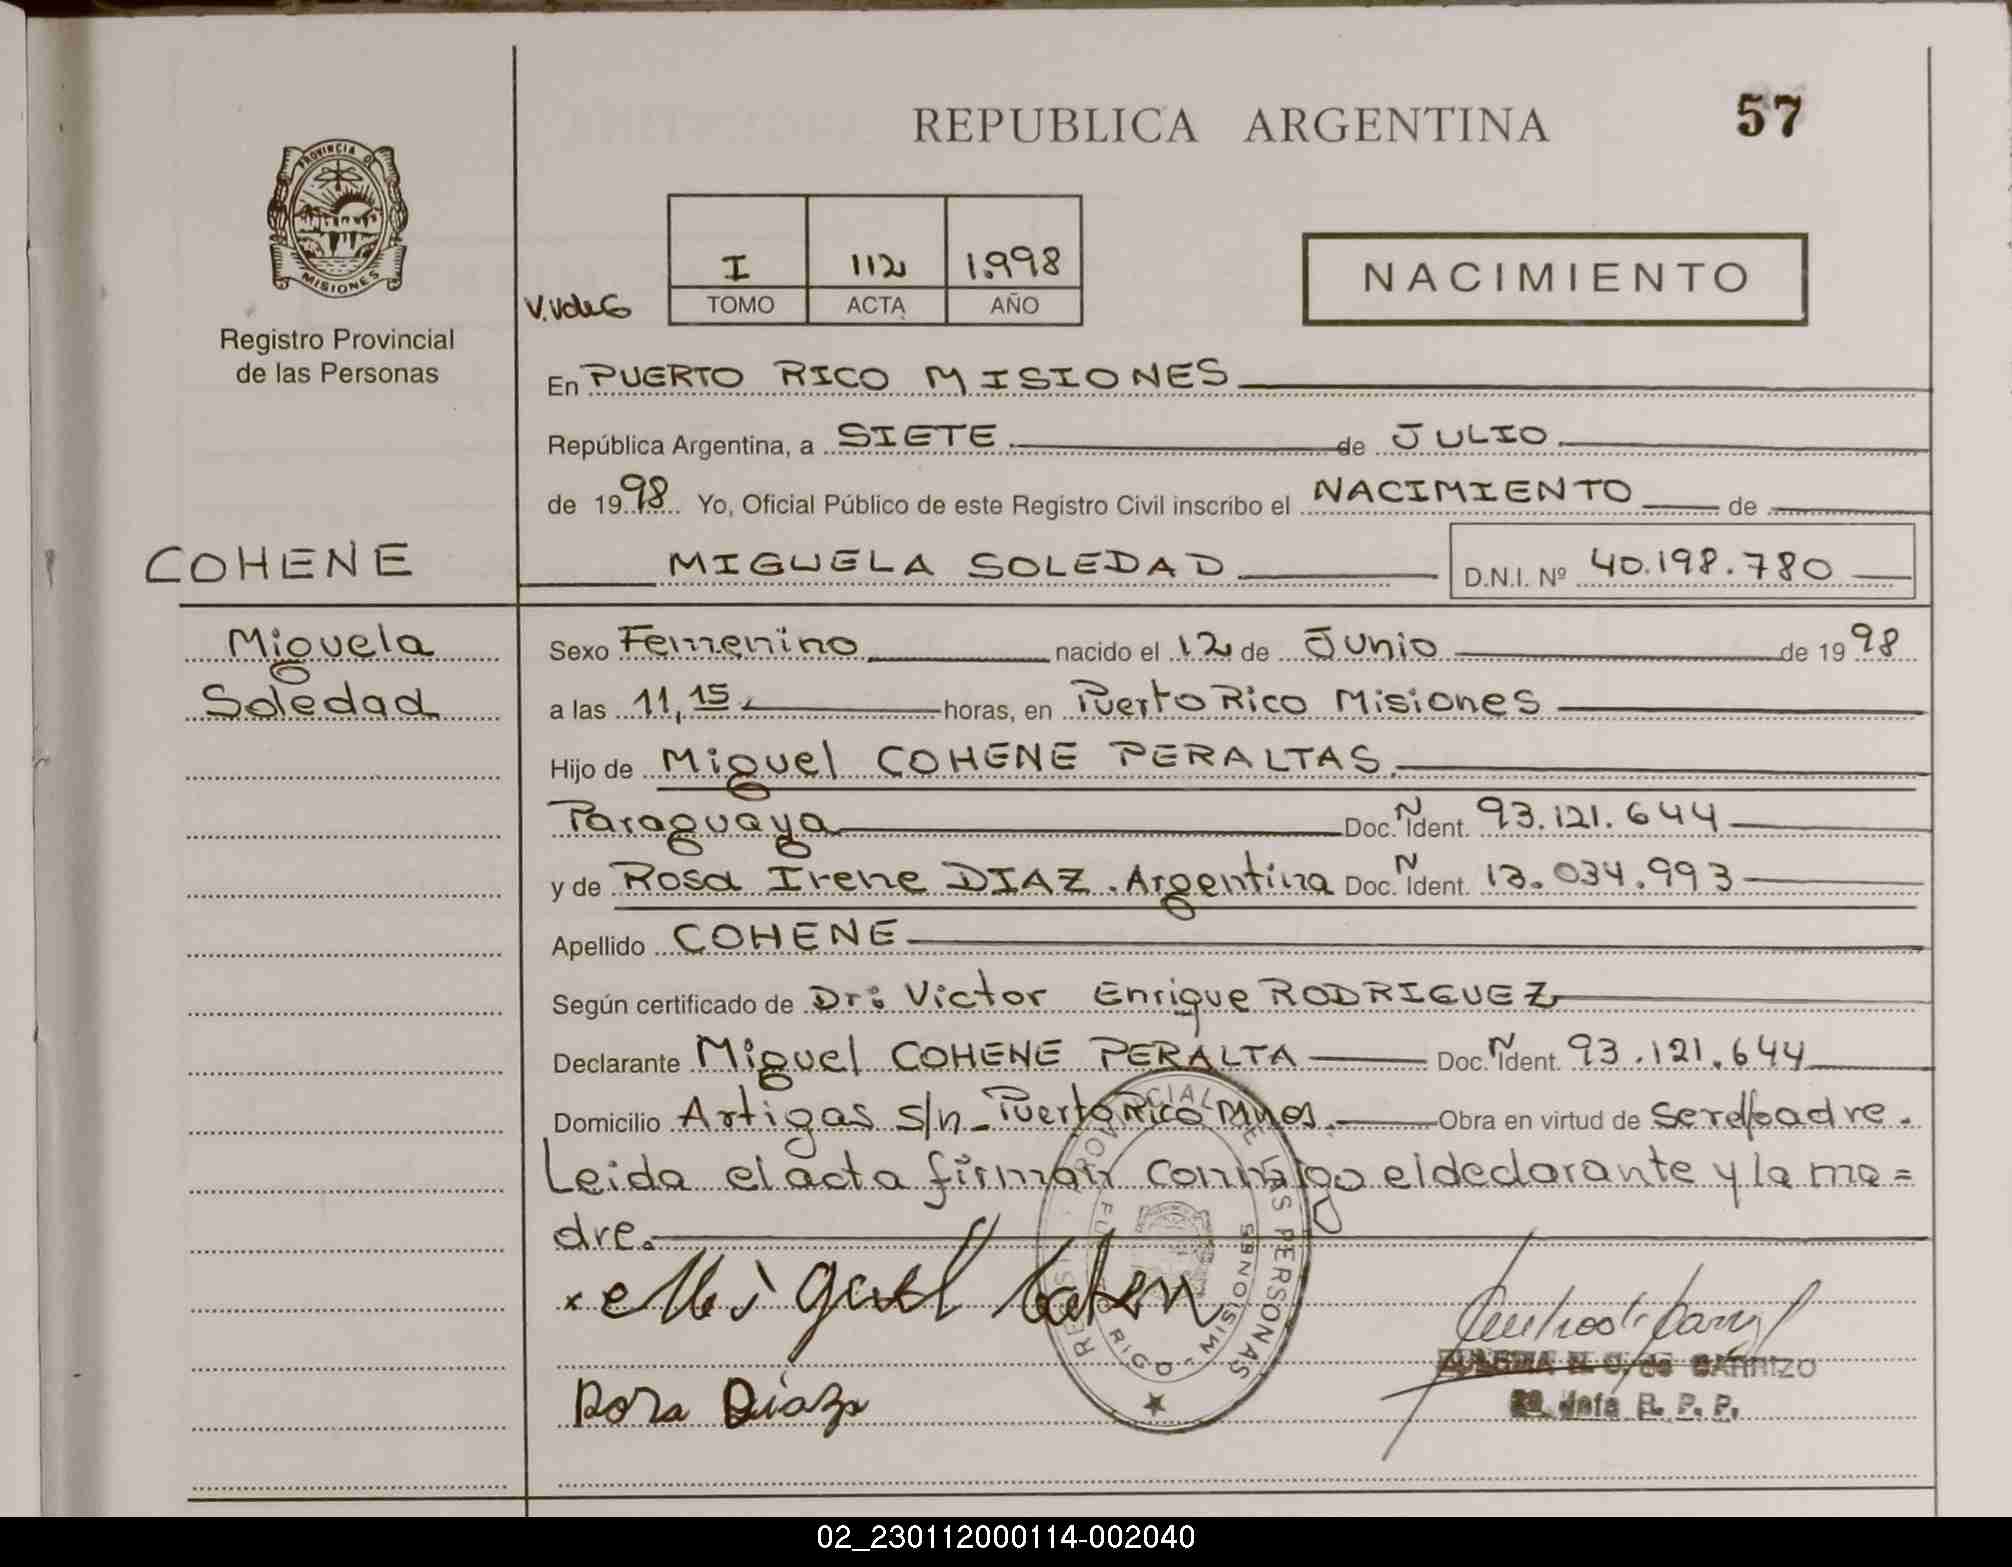 REPUBLICA ARGENTINA
57
PROVINCIA DE
MISIONES
Registro Provincial
de las Personas
V.V de G
I 112 1.998
TOMO ACTA AÑO
NACIMIENTO
En PUERTO RICO MISIONES
República Argentina, a SIETE de JULIO
de 1998 Yo, Oficial Público de este Registro Civil inscribo el NACIMIENTO de
COHENE
MIGUELA SOLEDAD D.N.I. Nº 40.198.780
Miguela
Soledad
Sexo Femenino nacido el 12 de Junio de 1998
a las 11,15 horas, en Puerto Rico Misiones
Hijo de Miguel COHENE PERALTAS.
Paraguaya Doc. Ñ Ident. 93.121.644
y de Rosa Irene DIAZ. Argentina Doc. N Ident. 13.034.993
Apellido COHENE
Según certificado de Dr: Victor Enrique RODRIGUEZ
Declarante Miguel COHENE PERALTA Doc. Ñ Ident. 93.121.644
Domicilio Artigas s/n - Puerto Rico Mnes. Obra en virtud de ser el padre.
Leida el acta firman conmigo el declarante y la ma=
dre.
REGISTRO PROVINCIAL DE LAS PERSONAS
MISIONES
x Miguel Cohen
Rosa Díaz
N. C. de CARRIZO
Jefa R. P. P.
02_230112000114-002040